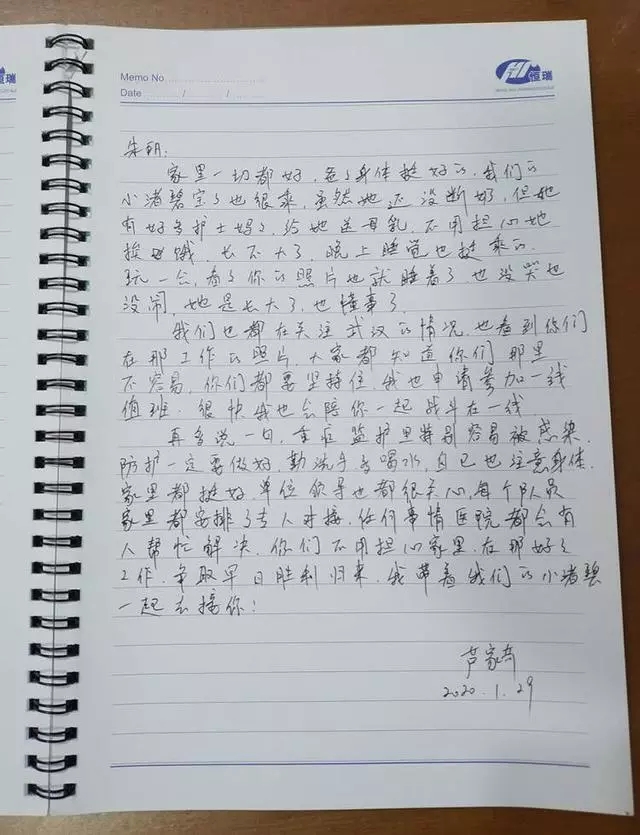 Memo No
Date / /
恒瑞
朱朝:
家里一切都好,爸爸身体挺好的,我们的
小渚碧宝宝也很乖,虽然她还没断奶,但她
有好多护士妈妈给她送母乳,不用担心她
挨饿,长不大了,晚上睡觉也挺乖的,
玩一会,看看你的照片也就睡着了,也没哭也
没闹,她是长大了,也懂事了。
我们也都在关注武汉的情况,也看到你们
在那工作的照片,大家都知道你们那里
不容易,你们都要坚持住,我也申请参加一线
值班,很快我也会陪你一起战斗在一线。
再多说一句,重症监护里特别容易被感染,
防护一定要做好,勤洗手多喝水,自己也注意身体,
家里都挺好,单位领导也都很关心,每个队员
家里都安排了专人对接,任何事情医院都会有
人帮忙解决,你们不用担心家里,在那好好
工作,争取早日胜利归来,我带着我们的小渚碧
一起去接你!
芦家奇
2020.1.29